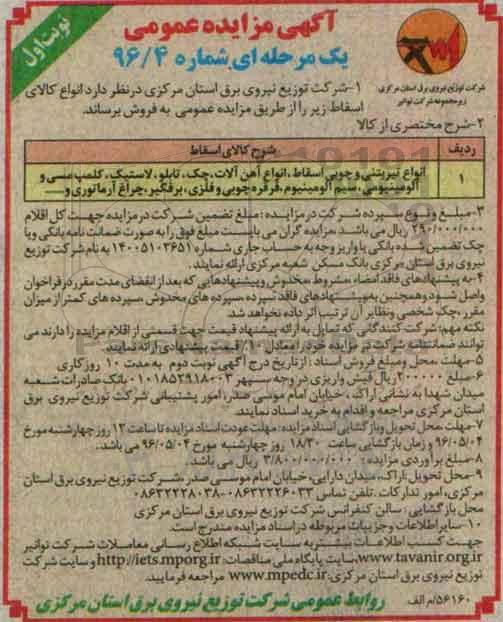 نوبت اول
آگهی مزایده عمومی
یک مرحله ای شماره ۹۶/۴
شرکت توزیع نیروی برق استان مرکزی
زیرمجموعه شرکت توانیر
۱-شرکت توزیع نیروی برق استان مرکزی درنظر دارد انواع کالای
اسقاط زیر را از طریق مزایده عمومی به فروش برساند.
۲-شرح مختصری از کالا
ردیف شرح کالای اسقاط
۱ انواع تیربتنی و چوبی اسقاط، انواع آهن آلات، جک، تابلو، لاستیک، کلمپ مسی و
آلومینیومی، سیم آلومینیوم، قرقره چوبی و فلزی، برقگیر، چراغ آرماتوری و....
۳-مبلغ و نوع سپرده شرکت در مزایده: مبلغ تضمین شرکت در مزایده جهت کل اقلام
۲۹۰/۰۰۰/۰۰۰ ریال می باشد. مزایده گران می بایست مبلغ فوق را به صورت ضمانت نامه بانکی و یا
چک تضمین شده بانکی یا واریز وجه به حساب جاری شماره ۱۴۰۰۵۱۰۳۶۵۱ به نام شرکت توزیع
نیروی برق استان مرکزی بانک مسکن شعبه مرکزی ارائه نمایند.
۴-به پیشنهادهای فاقد امضاء، مشروط، مخدوش و پیشنهادهایی که بعد از انقضای مدت مقرر در فراخوان
واصل شود و همچنین به پیشنهادهای فاقد سپرده، سپرده های مخدوش، سپرده های کمتر از میزان
مقرر، چک شخصی ونظایر آن ترتیب اثر داده نخواهد شد.
نکته مهم: شرکت کنندگانی که تمایل به ارائه پیشنهاد قیمت جهت قسمتی از اقلام مزایده را دارند می
توانند ضمانتنامه شرکت در مزایده خود را معادل ۱۰٪ قیمت پیشنهادی ارائه نمایند.
۵-مهلت، محل ومبلغ فروش اسناد: از تاریخ درج آگهی نوبت دوم به مدت ۱۰ روز کاری
۶-مبلغ ۲۰۰۰۰۰ ریال فیش واریزی در وجه سپهر ۰۱۰۱۸۵۲۹۱۸۰۰۳ بانک صادرات شعبه
میدان شهدا به نشانی اراک، خیابان امام موسی صدر، امور پشتیبانی شرکت توزیع نیروی برق
استان مرکزی مراجعه و اقدام به خرید اسناد نمایند.
۷-مهلت، محل تحویل وبازگشایی اسناد مزایده: مهلت عودت اسناد مزایده تا ساعت ۱۲ روز چهارشنبه مورخ
۹۶/۰۵/۰۴ و زمان بازگشایی ساعت ۱۸/۳۰ روز چهارشنبه مورخ ۹۶/۰۵/۰۴ می باشد.
۸-مبلغ برآوردی مزایده: ۳/۸۰۰/۰۰۰/۰۰۰ ریال می باشد.
۹-محل تحویل: اراک، میدان دارایی، خیابان امام موسی صدر، شرکت توزیع نیروی برق استان
مرکزی، امور تدارکات. تلفن تماس ۰۸۶۳۲۲۲۶۰۳۳-۰۸۶۳۲۲۲۸۰۳۸
محل بازگشایی: سالن کنفرانس شرکت توزیع نیروی برق استان مرکزی
۱۰-سایر اطلاعات و جزییات مربوطه در اسناد مزایده مندرج است.
جهت کسب اطلاعات بیشتر به سایت شبکه اطلاع رسانی معاملات شرکت توانیر
www.tavanir.org.ir، سایت پایگاه ملی مناقصات: http://iets.mporg.ir و سایت شرکت
توزیع نیروی برق استان مرکزی: www.mpedc.ir مراجعه فرمایید.
۵۶۱۶۰/م الف
روابط عمومی شرکت توزیع نیروی برق استان مرکزی